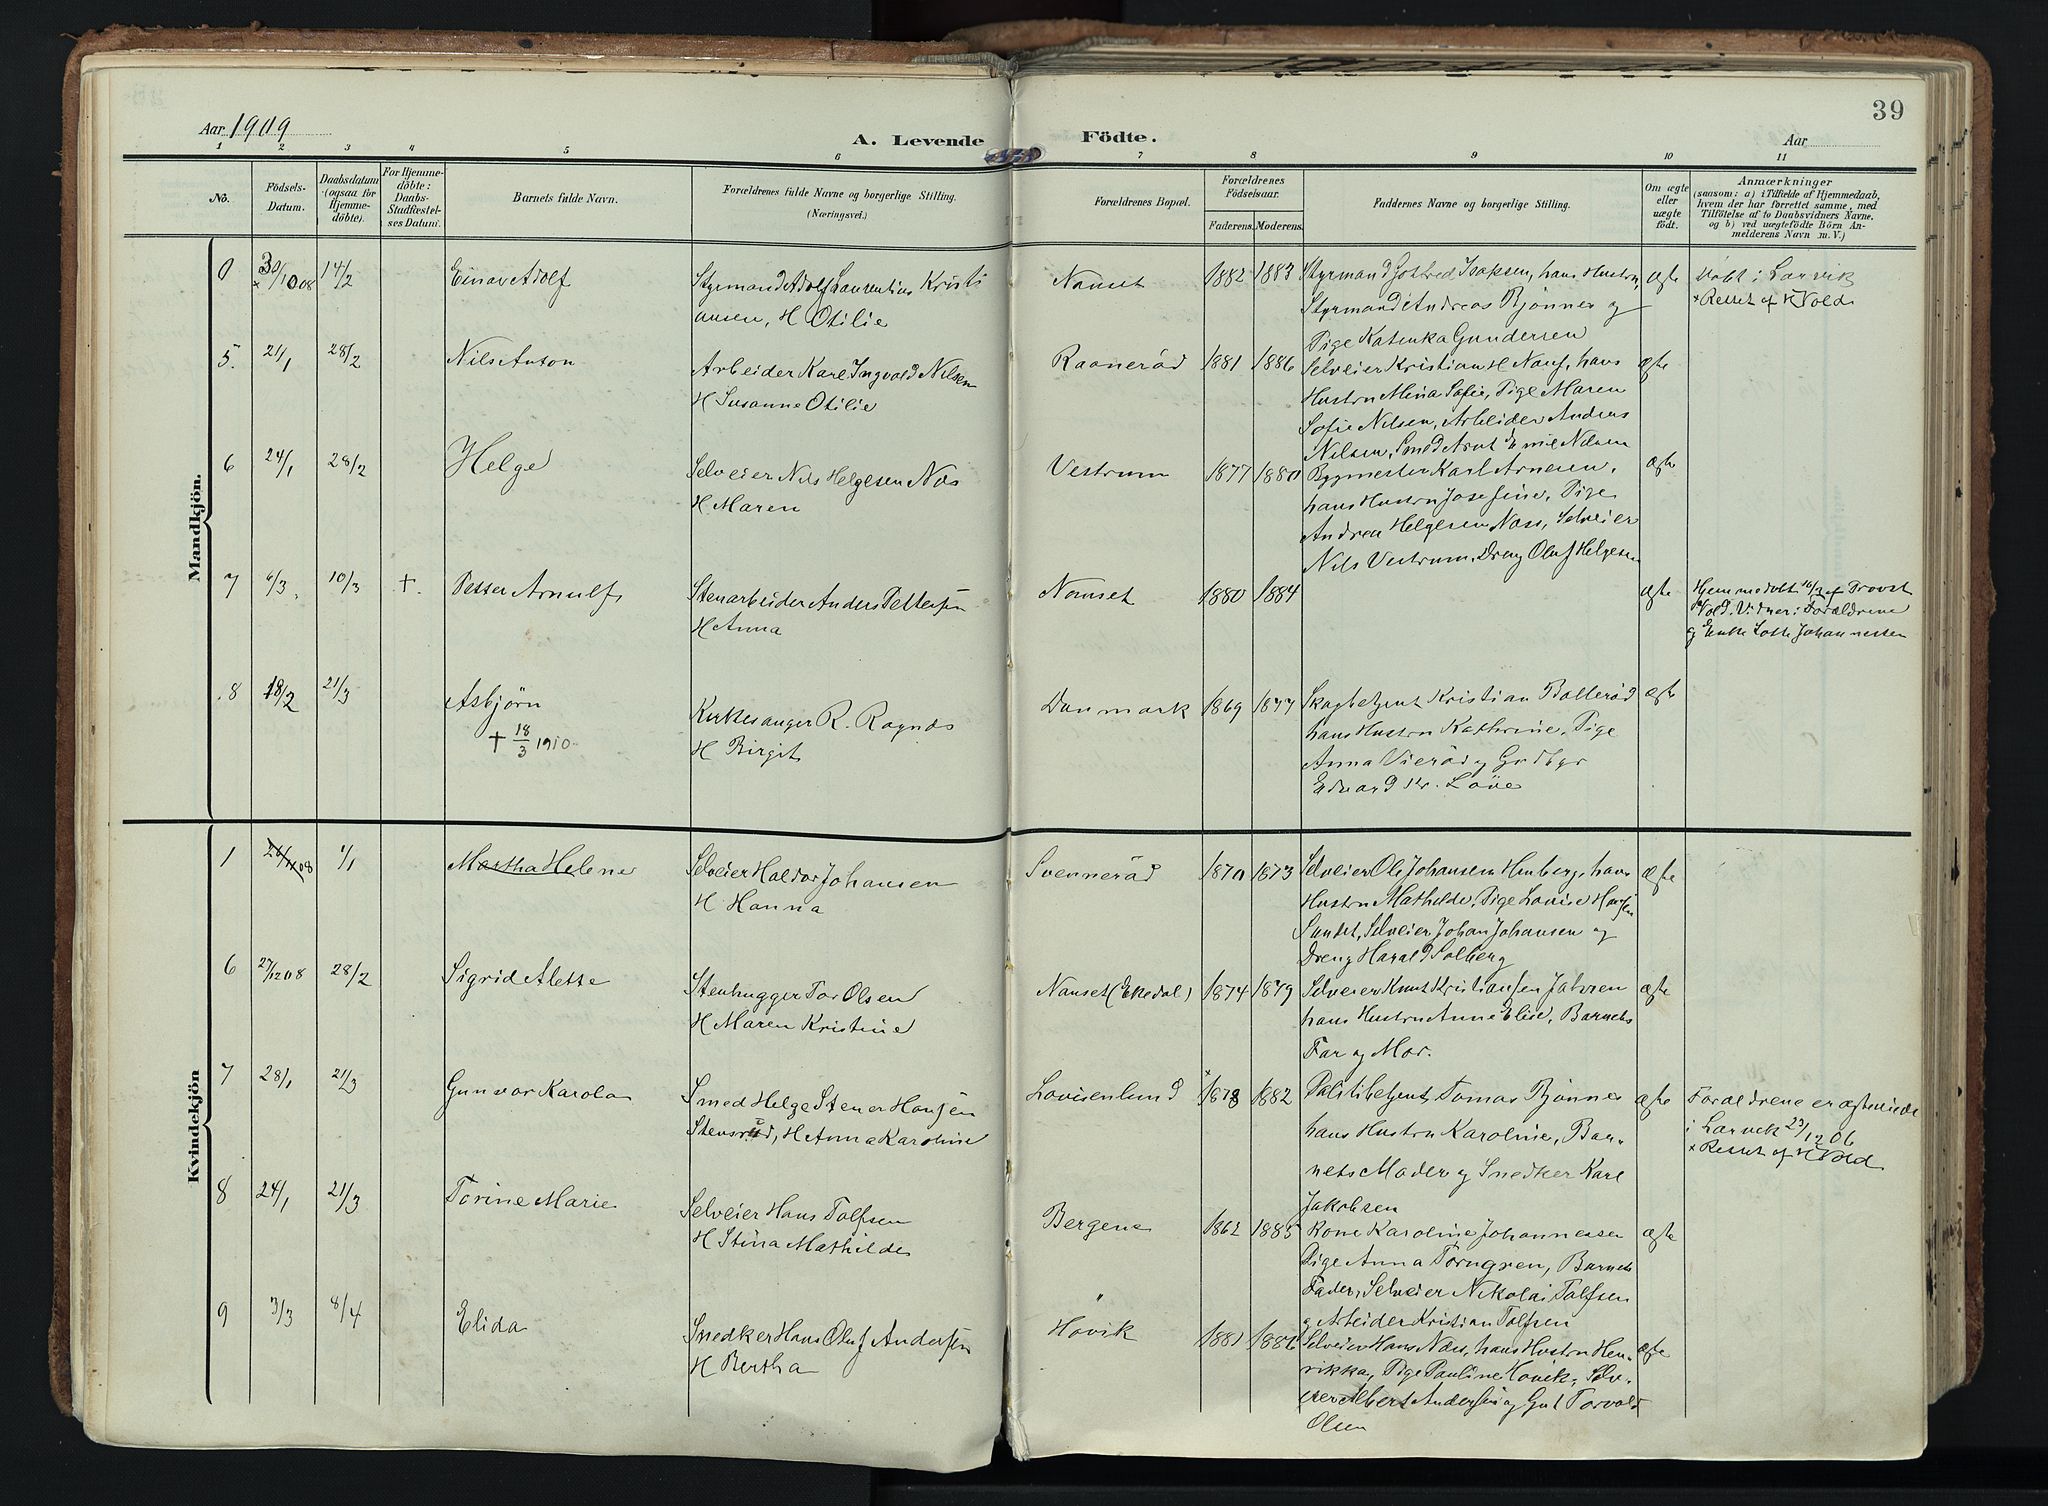 39
Aar 1909
A. Levende Födte.
Aar
1 2 3 4 5 6 7 8 9 10 11
No.
Födsels-Datum.
Daabsdatum (ogsaa for Hjemme-döbte).
For Hjemme-döbte: Daabs-Stadfæstel-ses Datum.
Barnets fulde Navn.
Forældrenes fulde Navne og borgerlige Stilling.
(Næringsvei.)
Forældrenes Bopæl.
Forældrenes Födselsaar.
Faderens. Moderens.
Faddernes Navne og borgerlige Stilling.
Om ægte eller uægte födt.
Anmærkninger
(saasom: a) i Tilfælde af Hjemmedaab, hvem der har forrettet samme, med Tilföielse af to Daabsvidners Navne, og b) ved uægtefödte Börn An-melderens Navn m. V.)
Mandkjön.
0 x 30/10 08 14/2 Einar Adolf
Styrmand Adolf Laurentius Kristi
ansen, H Otilie
Nanset 1882 1883
Styrmand Gotfred Isaksen, hans Hustru,
Styrmand Andreas Bjönnes og
Pige Katinka Gundersen
ægte
Döbt i Larvik
x Rettet af K Vold
5. 21/1 28/2 Nils Anton
Arbeider Karl Ingvald Nilsen
H Susanne Otilie
Raaneröd 1881 1886
Selveier Kristian H Nauf, hans
Hustru Mina Sofie, Pige Maren
Sofie Nilsen, Arbeider Anders
Nilsen, Smed Arnt Emil Nilsen
ægte
6 24/1 28/2 Helge
Selveier Nils Helgesen Næs
H Maren
Vestrum 1877 1880
Bygmester Karl Arnesen,
hans Hustru Josefine, Pige
Andrea Helgesen Næss, Selveier
Nils Vestrum, Dreng Oluf Helgesen
ægte
7 6/3. 10/3 +. Petter Arnulf
Stenarbeider Anders Pettersen
H Anna
Nanset 1880 1884
ægte
Hjemmedöbt 10/3 af Provst
Vold. Vidner: Forældrene
og Enke Lotte Johannessen
.8 18/2 21/3 Asbjörn
+ 18/3 1910.
Kirkesanger R. Rognås
H Birgit
Danmark 1869 1877
Skogbetjent Kristian Bölleröd
hans Hustru Kathrine, Pige
Anna Vieröd og Grdbgr
Edvard Kr. Löve
ægte
Kvindekjön
1 26/11 08 1/1 Martha Helene
Selveier Haldor Johansen
H Hanna
Svenneröd 1870 1873
Selveier Ole Johansen Himberg, hans
Hustru Mathilde, Pige Lovise Hansen
Sundet, Selveier Johan Johansen og
Dreng Harald Solberg
ægte
6 27/12 08 28/2 Sigrid Alette
Stenhugger Tor Olsen
H Maren Kristine
Nanset (Ekedal) 1874 1879
Selveier Knut Kristiansen Jahren
hans Hustru Anne Elise, Barnets
Far og Mor.
ægte
7 28/1 21/3 Gunvor Karola
Smed Helge Stener Hansen
Stensröd, H Anna Karoline
Lovisenlund x 1878 1882
Politibetjent Tomas Bjönnes
hans Hustru Karoline, Bar-
nets Moder og Snedker Karl
Jakobsen
ægte
Forældrene er ægteviede
i Larvik 23/12 06
x Rettet af K Vold
8 24/1 21/3 Torine Marie
Selveier Hans Tolfsen
H Stina Mathilde
Bergene 1862 1885
Kone Karoline Johannessen
Pige Anna Torngren, Barnets
Fader, Selveier Nikolai Tolfsen
og Arbeider Kristian Tolfsen
ægte
9 3/3 8/4 Elida
Snedker Hans Oluf Andersen
H Bertha
Hovik 1881 1886
Selveier Hans Næss, hans Hustru Hen-
rikka, Pige Pauline Hovik, Selv-
eier Albert Andersen og Gut Torvald
Olsen
ægte